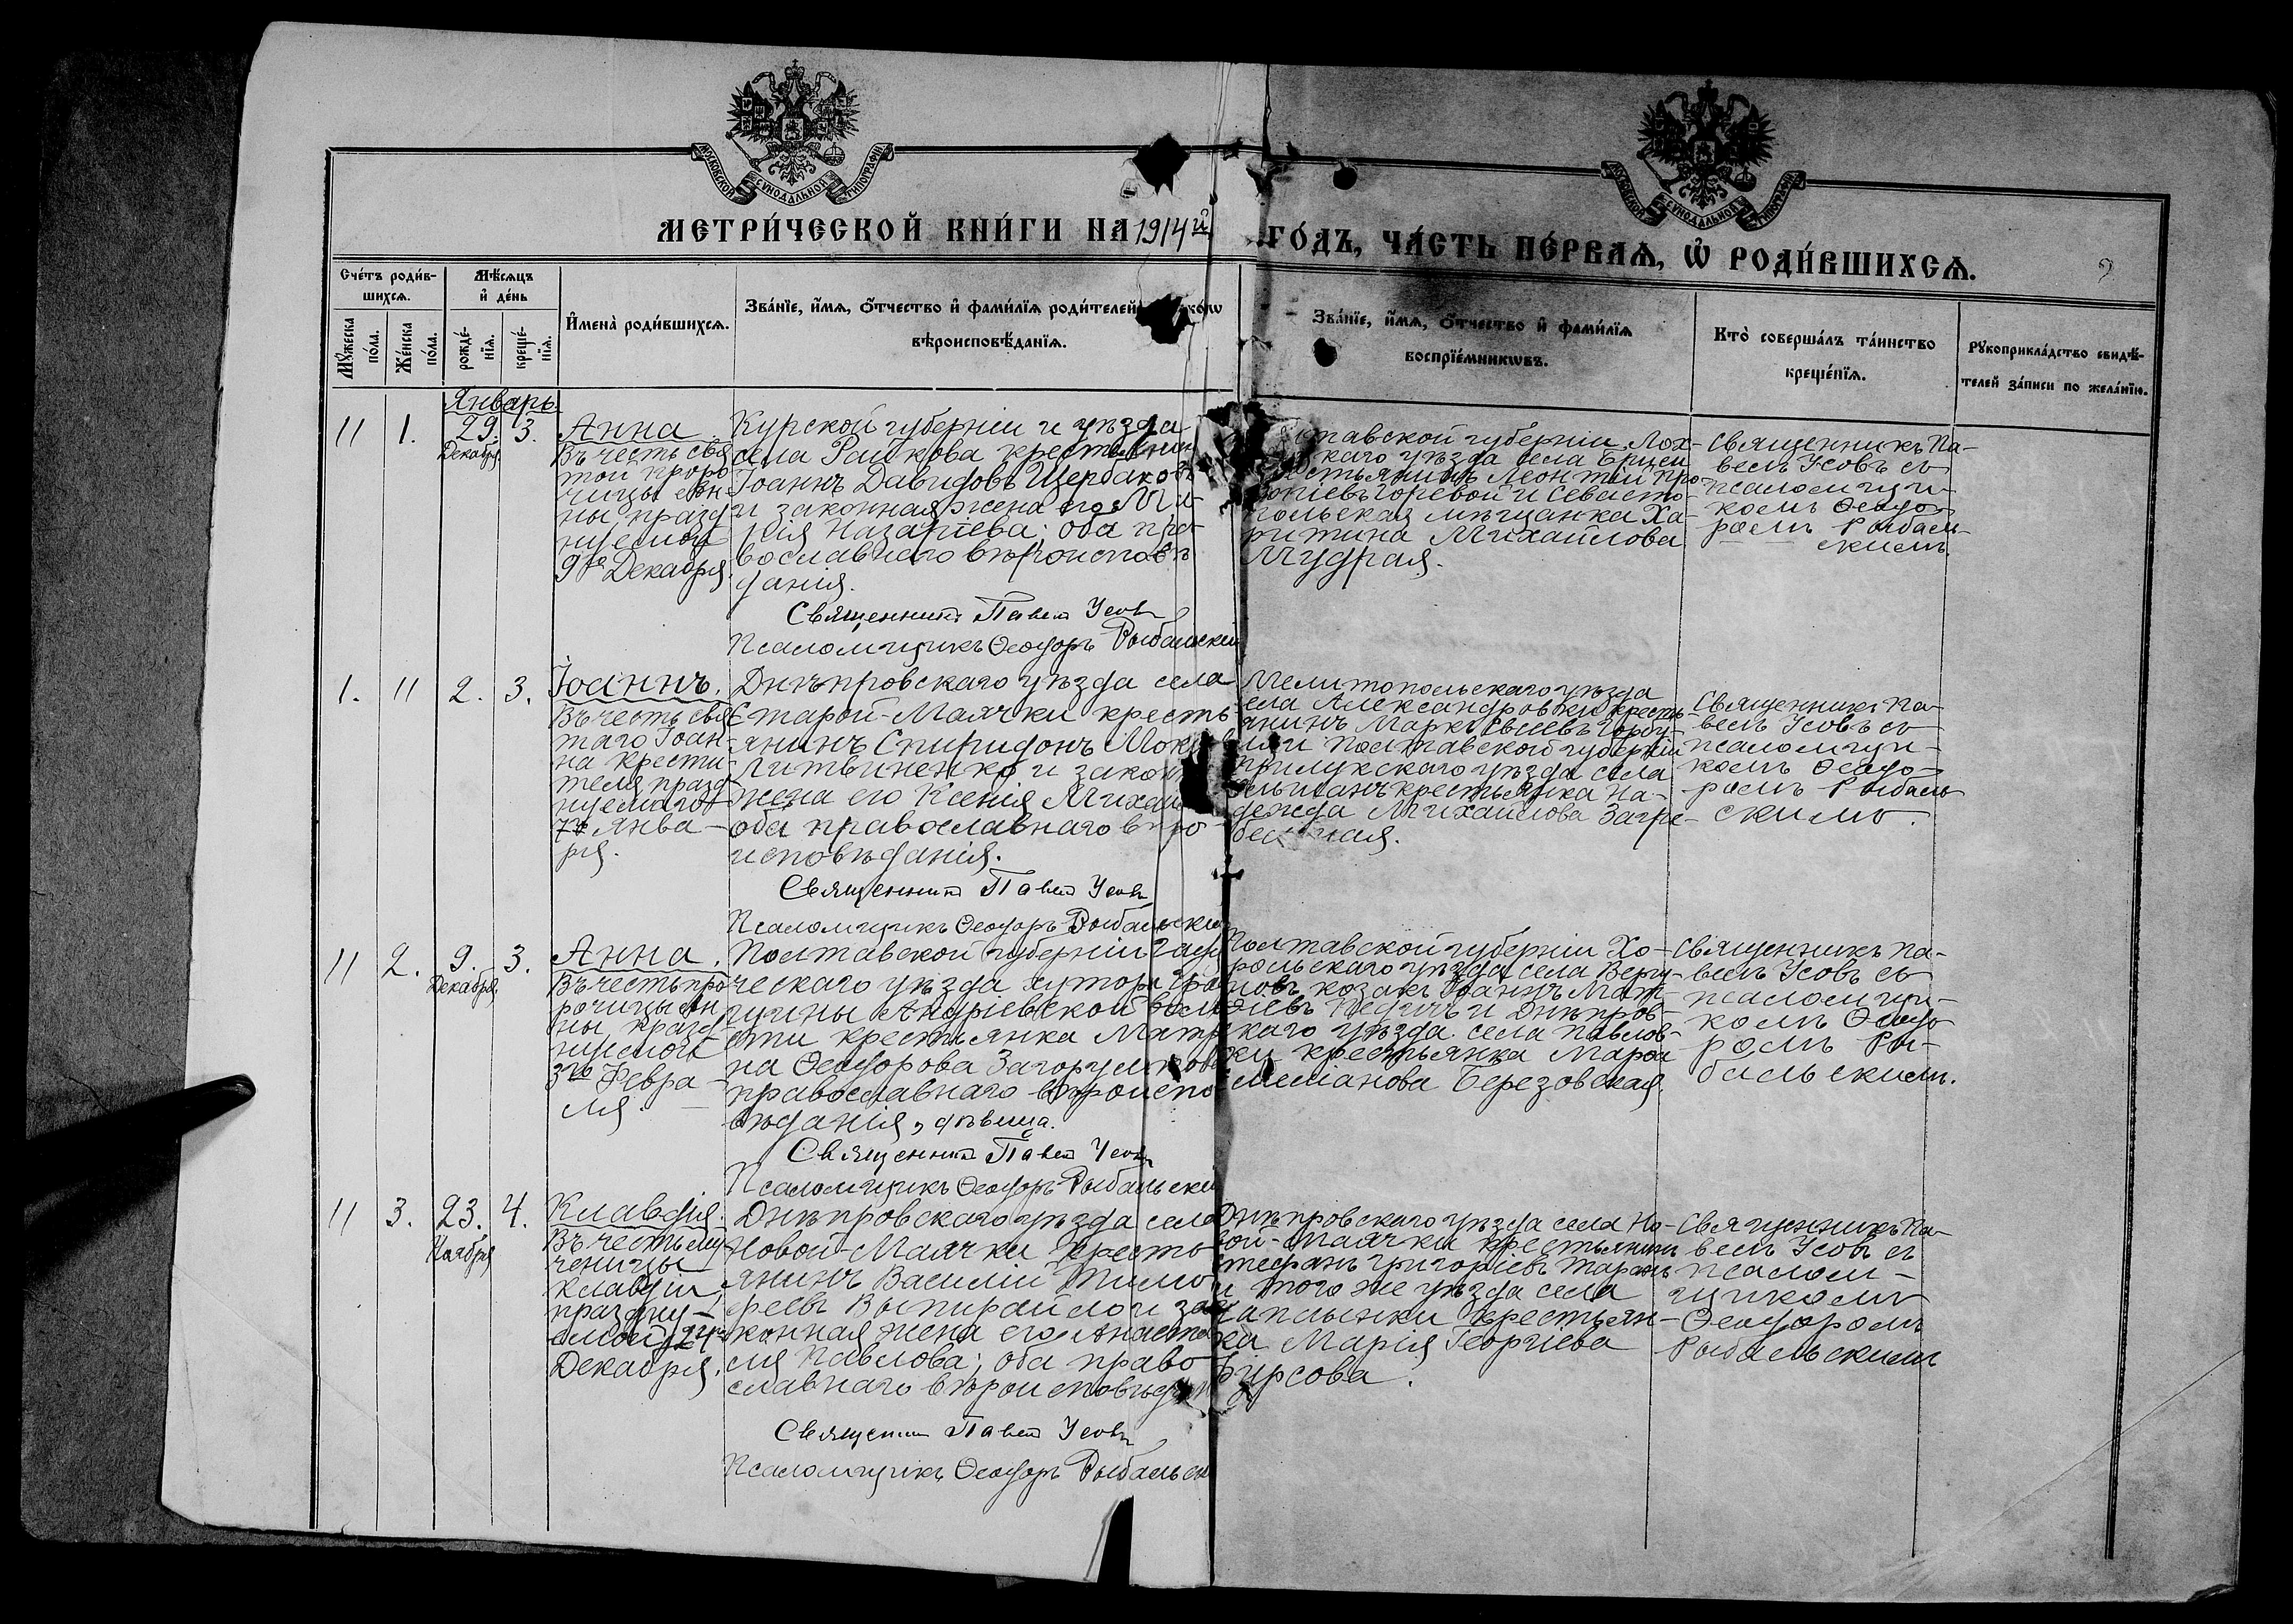 МОСКОВСКОЙ СѴНОДАЛЬНОЙ ТИПОГРАФІИ
МОСКОВСКОЙ СѴНОДАЛЬНОЙ ТИПОГРАФІИ
МЕТРИ́ЧЕСКОЙ КНИ́ГИ НА 1914 й
ГО́ДЪ, ЧА́СТЬ ПЕ́РВАѦ, Ѡ҆ РОДИ́ВШИХСѦ.
Сче́тъ роди́в-
шихсѧ.
Мꙋ́жеска
по́ла.
Же́нска
по́ла.
Мѣ́сѧцъ
и҆ де́нь
рожде́-
нїѧ.
креще́-
нїѧ.
И҆мена̀ роди́вшихсѧ.
Зва́нїе, и҆́мѧ, ѻ҆́тчество и҆ фами́лїѧ роди́телей
вѣроисповѣ́данїѧ.
Зва́нїе, и҆́мѧ, ѻ҆́тчество и҆ фами́лїѧ
воспрїе́мникѡвъ.
Кто̀ соверша́лъ та́инство
креще́нїѧ.
Рꙋкоприкла́дство свидѣ́-
телей за́писи по жела́нїю.
Январь
11 1. 29. 3.
Декабря
Анна
Въ честь свя
той проро
чицы Ан-
ны, празд
нуемой
9го Декабря.
Курской губерніи и уѣзда
села Рашкова крестьянин
Іоаннъ Давидовъ Щербаковъ
и законная жена его Ма-
рія Назаріева; оба пра-
вославнаго вѣроисповѣ
данія.
Священникъ Павелъ Усовъ
Псаломщикъ Ѳеодоръ Рыбальскій
тавской губерніи Лох-
каго уѣзда села Бриси
стьянинъ Леонтій Про-
копіевъ Горевой и Севасто-
польская мѣщанка Ха-
ритина Михайлова
Мудрая.
Священникъ Па-
велъ Усовъ съ
псаломщи-
комъ Ѳеодо-
ромъ Рыбаль-
скимъ.
1. 11 2. 3.
Іоаннъ.
Въ честь свя
таго Іоан-
на крести-
теля празд
нуемаго
7го Янва-
ря.
Днѣпровскаго уѣзда села
Старой-Маячки кресть-
янинъ Спиридонъ
Литвиненко и закон
жена его Ксенія Михай
оба православнаго вѣро-
исповѣданія.
Священникъ Павелъ Усовъ
Псаломщикъ Ѳеодоръ Рыбальскій
Мелитопольскаго уѣзда
села Александровки кресть-
янинъ Маркъ Горбу-
и Полтавской губерніи
Прилукскаго уѣзда села
крестьянка На-
дежда Михайлова Загре-
бельная.
Священникъ Па-
велъ Усовъ съ
псаломщи-
комъ Ѳеодо-
ромъ Рыбаль-
скимъ.
11 2. 9. 3.
Декабря
Анна.
Въ честь про
рочицы Ан
ны, празд-
нуемой
3го Февра-
ля.
Полтавской губерніи Гадя
ческаго уѣзда хутора
Андріевской воло
сти крестьянка Матр
на Ѳеодорова Загорулькова
православнаго вѣроиспо
вѣданія, дѣвица.
Священникъ Павелъ Усовъ
Псаломщикъ Ѳеодоръ Рыбальскій
Полтавской губерніи Хо-
рольскаго уѣзда села Вергу-
новъ козакъ Іоаннъ Мат-
ѳіевъ и Днѣпров-
скаго уѣзда села Павлов-
ки крестьянка Марѳа
Емеліанова Березовская.
Священникъ Па-
велъ Усовъ съ
псаломщи-
комъ Ѳеодо
ромъ Ры-
бальскимъ.
11 3. 23. 4.
Ноября
Клавдія.
Въ честь му
ченицы
Клавдіи,
праздну-
емой 24го
Декабря.
Днѣпровскаго уѣзда села
Новой-Маячки кресть-
янинъ Василій Тимо
феевъ Выпирайло и за
конная жена его Анаста
сія Павлова; оба право
славнаго вѣроисповѣдан
Священникъ Павелъ Усовъ
Псаломщикъ Ѳеодоръ Рыбальск
Днѣпровскаго уѣзда села Но-
вой-Маячки крестьянинъ
Стефанъ Григоріевъ Таранъ
и того же уѣзда села
Чаплынки крестьян-
ка Марія Георгіева
Бурсова.
Священникъ Па-
велъ Усовъ съ
псалом-
щикомъ
Ѳеодоромъ
Рыбальскимъ